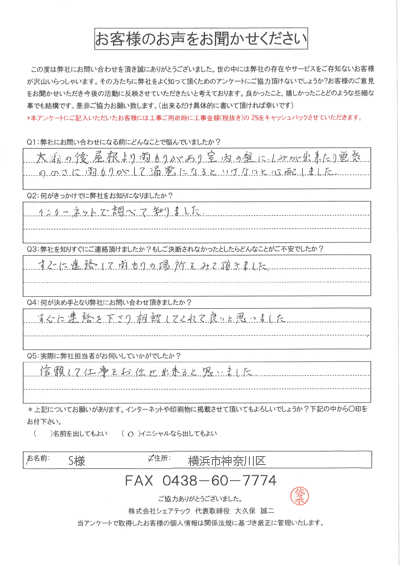 お客様のお声をお聞かせください
この度は弊社にお問い合わせを頂き誠にありがとうございました。世の中には弊社の存在やサービスをご存知ないお客様
が沢山いらっしゃいます。その方たちに弊社をよく知って頂くためのアンケートにご協力頂けないでしょうか?お客様のご意見
をお聞かせいただき今後の活動に反映させていただきたいと考えております。良かったこと、嬉しかったことどのような些細な
事でも結構です。是非ご協力お願い致します。(出来るだけ具体的に書いて頂ければ幸いです)
*本アンケートにご記入いただいたお客様には工事ご用命時に工事金額(税抜き)の 2%をキャッシュバックさせていただきます。
Q1:弊社にお問い合わせになる前にどんなことで悩んでいましたか?
大雨の後屋根より雨もりがあり室内の壁にしみが出来たり電気
のかさに雨もりがして漏電になるといけないと心配しました。
Q2:何がきっかけでに弊社をお知りになりましたか?
インターネットで調べて知りました。
Q3:弊社を知りすぐにご連絡頂けましたか?もしご決断されなかったとしたらどんなことがご不安でしたか?
すぐに連絡して雨もりの場所をみて頂きました。
Q4:何が決め手となり弊社にお問い合わせ頂きましたか?
すぐに連絡を下さり相談してくれて良いと思いました
Q5:実際に弊社担当者がお伺いしていかがでしたか?
信頼して仕事をお任せ出来ると思いました
*上記についてお願いがあります。インターネットや印刷物に掲載させて頂いてもよろしいでしょうか?下記の中から〇印を
お付下さい。
( )名前を出してもよい ( ○ )イニシャルなら出してもよい
お名前: S様 ご住所: 横浜市神奈川区
FAX 0438-60-7774
ご協力ありがとうございました。
株式会社シェアテック 代表取締役 大久保 誠二
当アンケートで取得したお客様の個人情報は関係法規に基づき厳正に管理いたします。